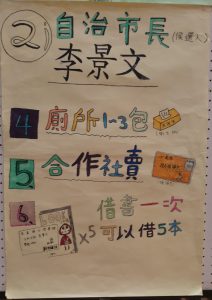 2 自治市長(候選人)
李景文
4 廁所1~3包
5 合作社賣
6. 借書一次
×5可以借5本